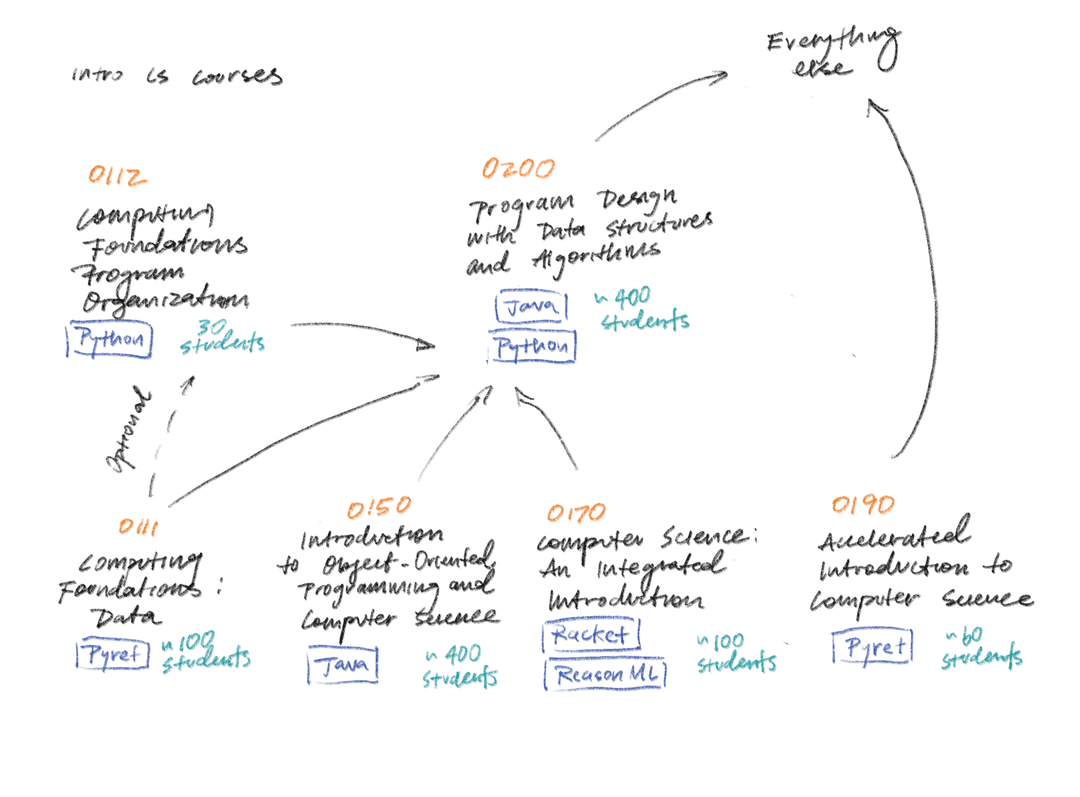 Intro CS courses
Everything
else
0112
Computing
Foundations
Program
Organization
Python
30
students
0200
Program Design
with Data Structures
and Algorithms
Java
Python
~ 400
students
Optional
0111
Computing
Foundations:
Data
Pyret
~100
students
0150
Introduction
to Object-Oriented
Programming and
Computer Science
Java
~ 400
students
0170
Computer Science:
An Integrated
Introduction
Racket
ReasonML
~100
students
0190
Accelerated
Introduction to
Computer Science
Pyret
~60
students